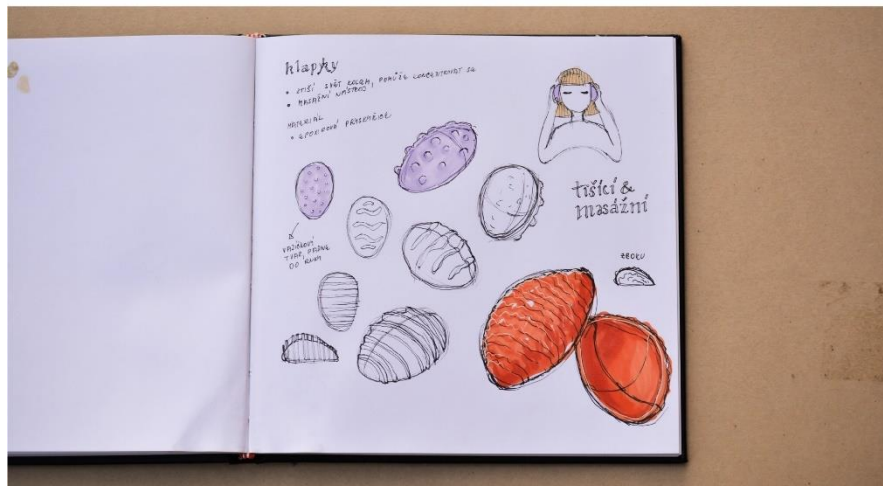 klapky
• ztiší svět kolem, pomůže koncentrovat se
• masážní nástroj
materiál
• epoxidová pryskyřice
tišící &
masážní
vajíčkový
tvar, padne
do ruky
zboku